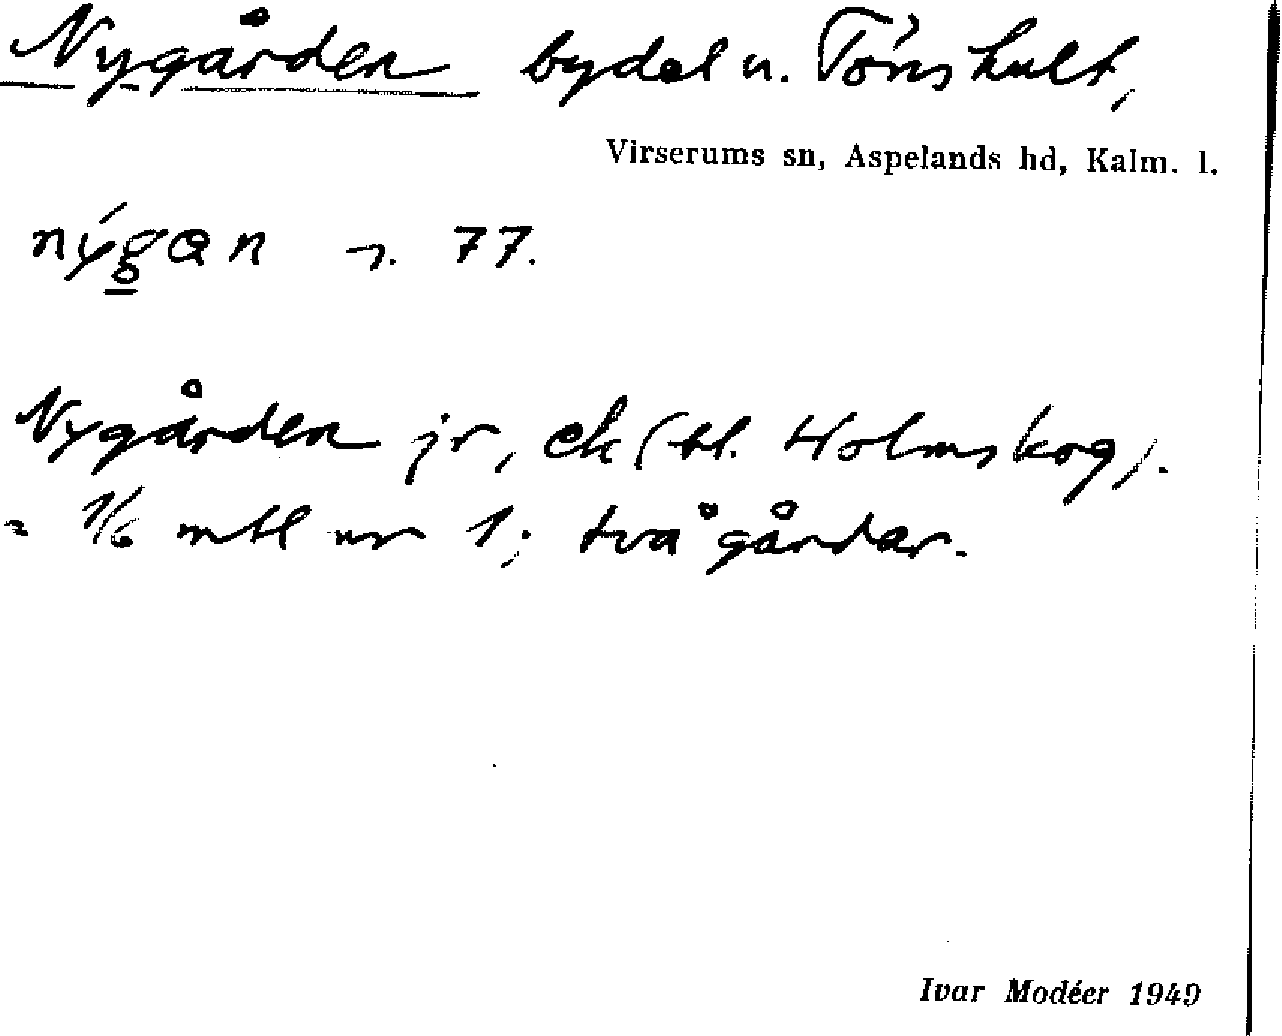 Nygården bydel u. Tönshult,
Virserums sn, Aspelands hd, Kalm. l.
77.
Nygården jr, ek (tl. Holmskog).
= 1/6 mtl nr 1; två gårdar.
Ivar Modéer 1949